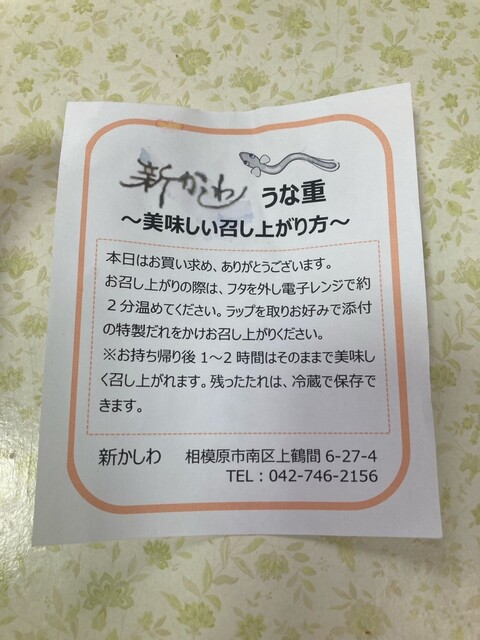 新かしわ うな重
～美味しい召し上がり方～
本日はお買い求め、ありがとうございます。
お召し上がりの際は、フタを外し電子レンジで約
２分温めてください。ラップを取りお好みで添付
の特製だれをかけお召し上がりください。
※お持ち帰り後 1～2 時間はそのままで美味し
く召し上がれます。残ったたれは、冷蔵で保存で
きます。
新かしわ 相模原市南区上鶴間 6-27-4
TEL：042-746-2156